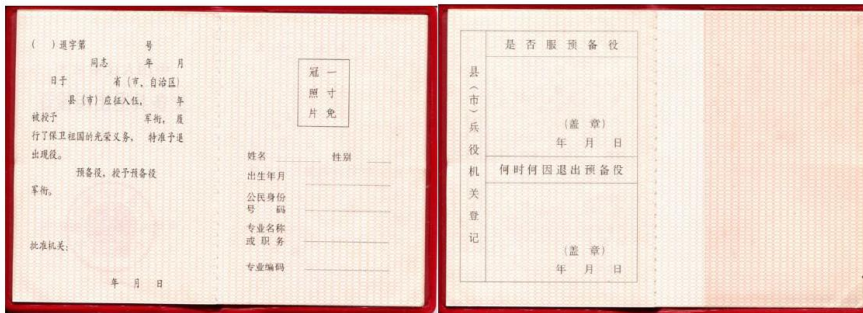 ( )退字第 号
同志 年 月
日于 省（市、自治区）
县（市）应征入伍， 年
被授予 军衔，履
行了保卫祖国的光荣义务， 特准予退
出现役。
预备役，授予预备役
军衔。
批准机关：
年 月 日
冠 一
照 寸
片 免
姓名 性别
出生年月
公民身份
号 码
专业名称
或 职 务
专业编码
县（市）兵役机关登记
是 否 服 预 备 役
（盖 章）
年 月 日
何时何因退出预备役
（盖 章）
年 月 日